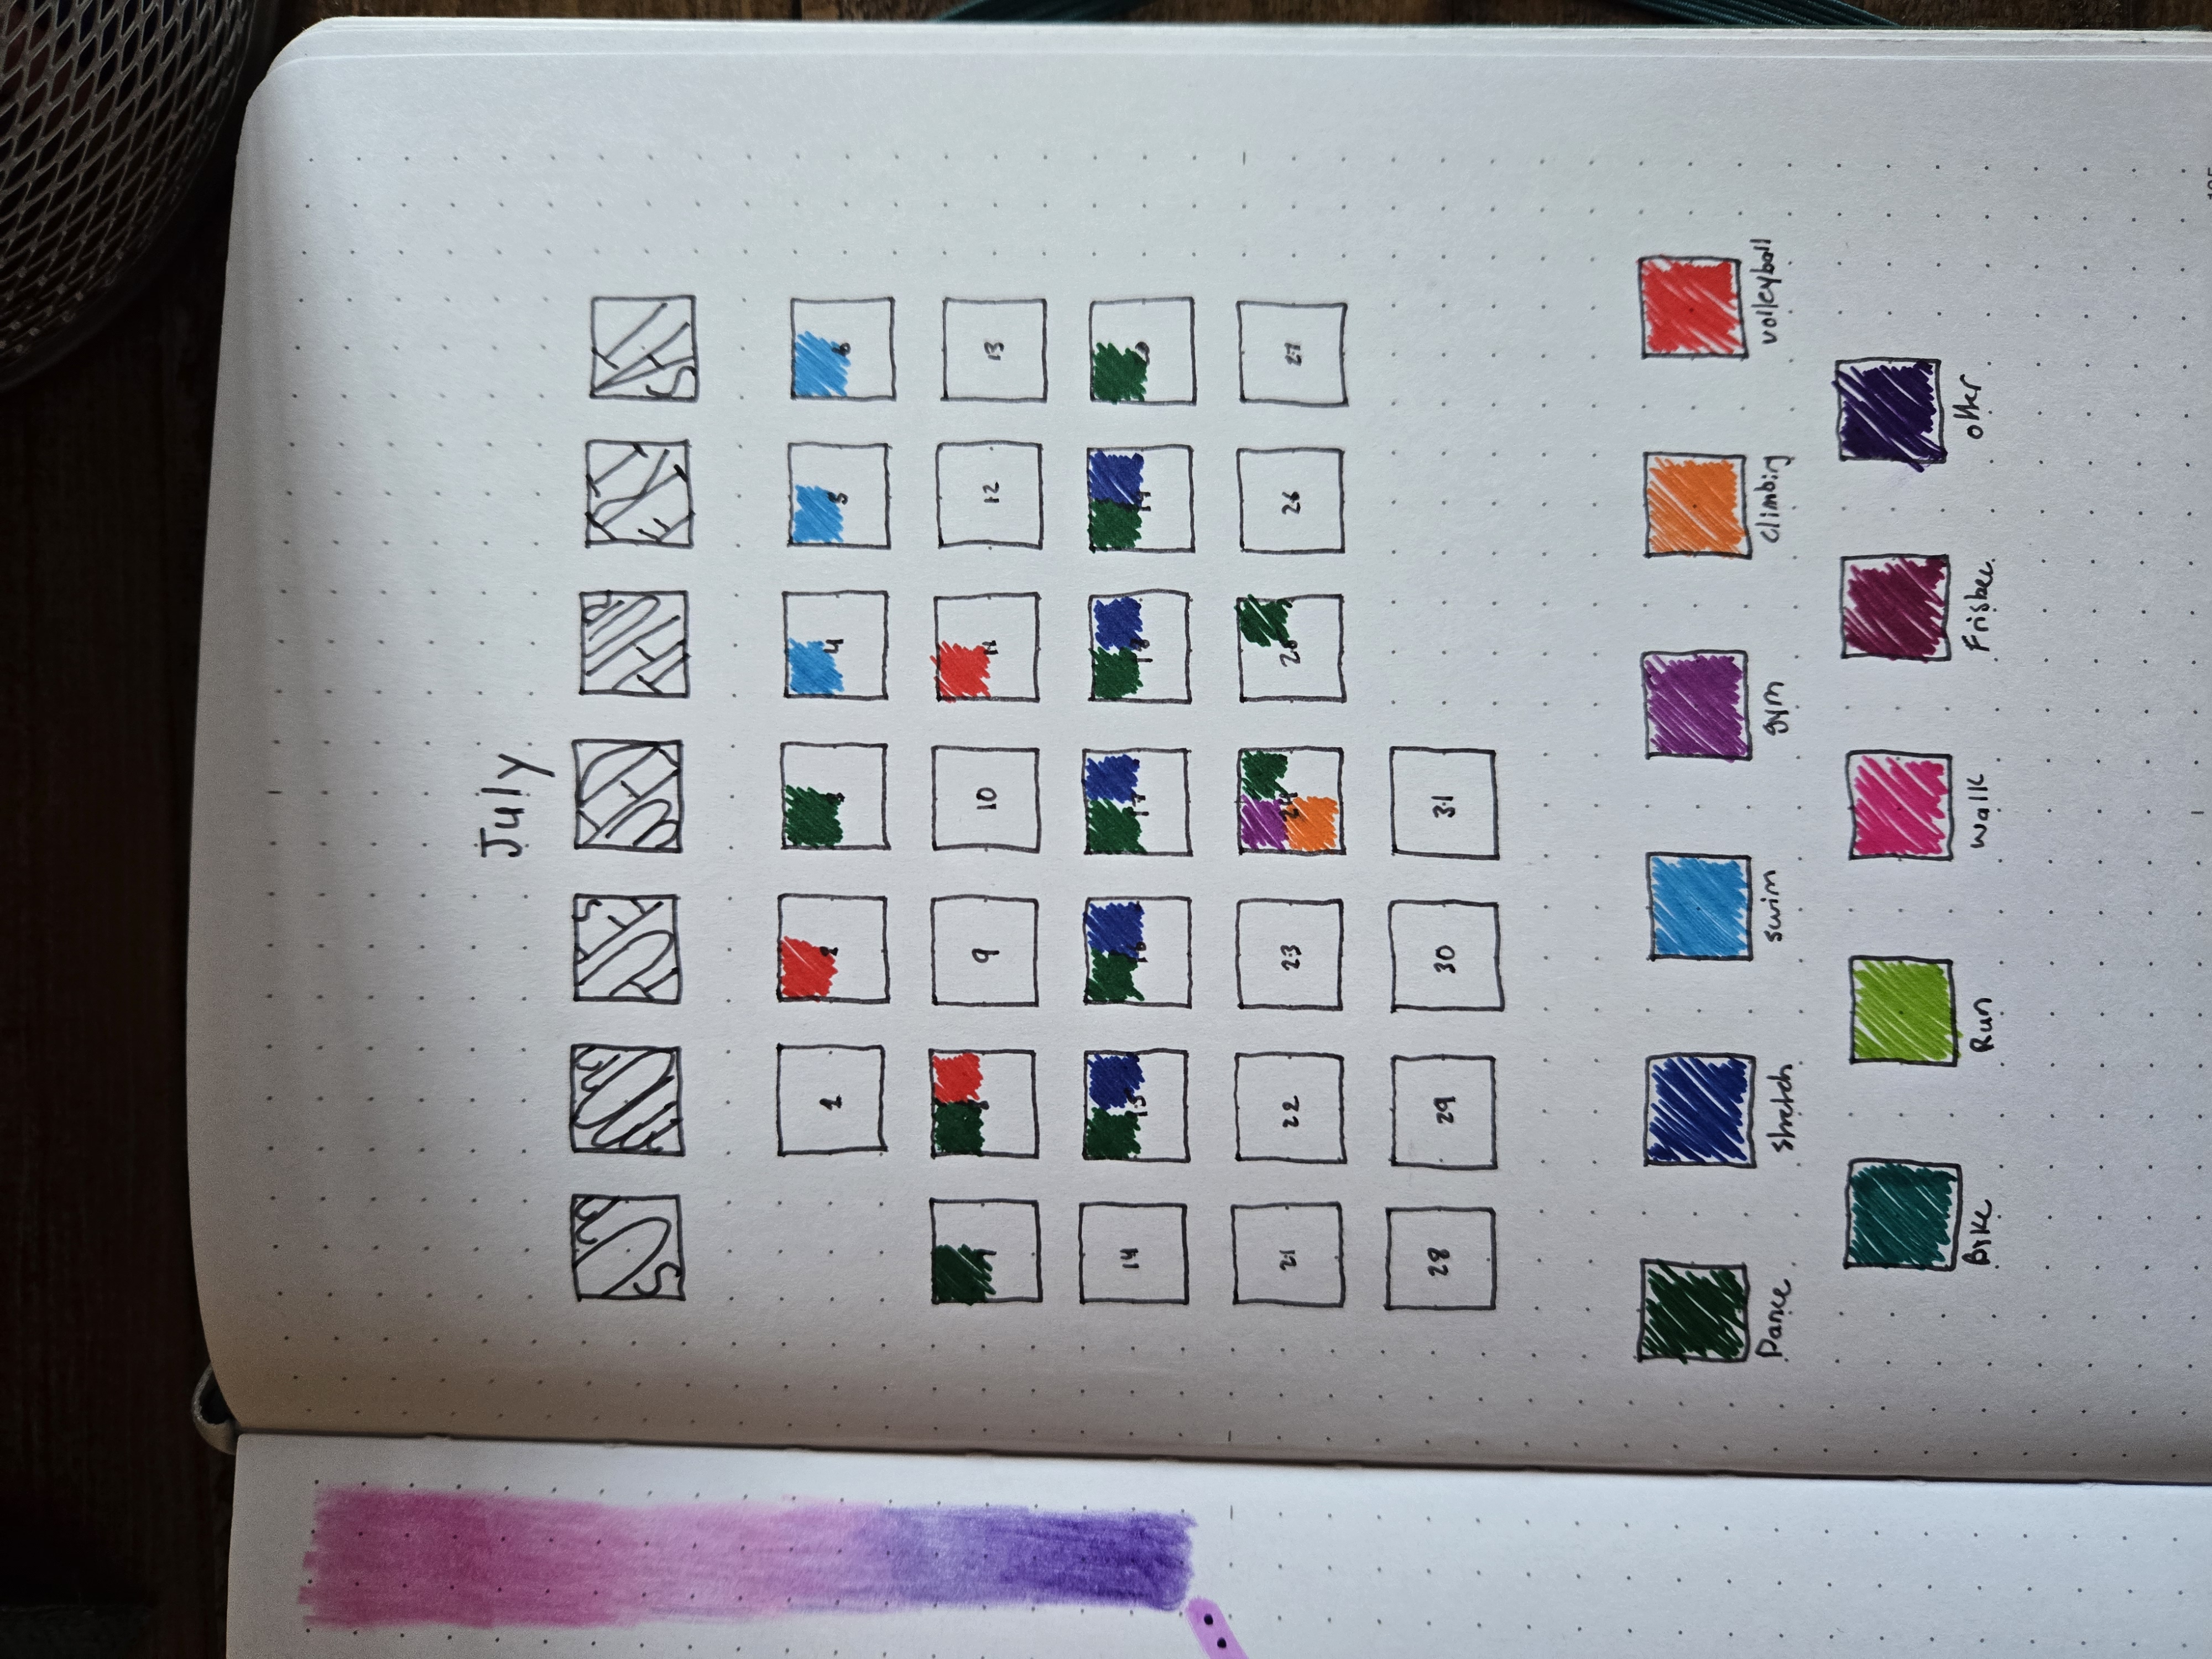 July
SUN MON TUES WED THUR FRI SAT
1 2 3 4 5 6
7 8 9 10 11 12 13
14 15 16 17 18 19 20
21 22 23 24 25 26 27
28 29 30 31
Dance stretch swim gym climbing volleyball
Bike Run walk Frisbee other